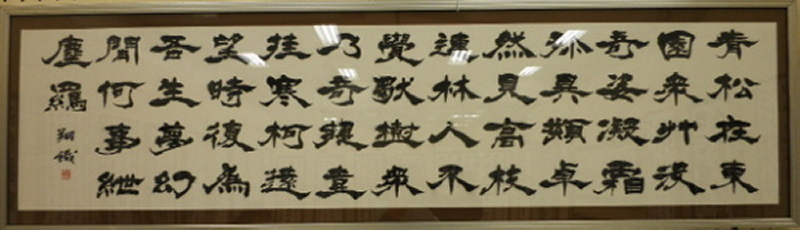 青松在東
園衆艸沒
奇姿凝霜
殄異類卓
然見高枝
連林人不
覺獨樹衆
乃奇提壺
挂寒柯遠
望時復為
吾生夢幻
間何事紲
塵羈
翔